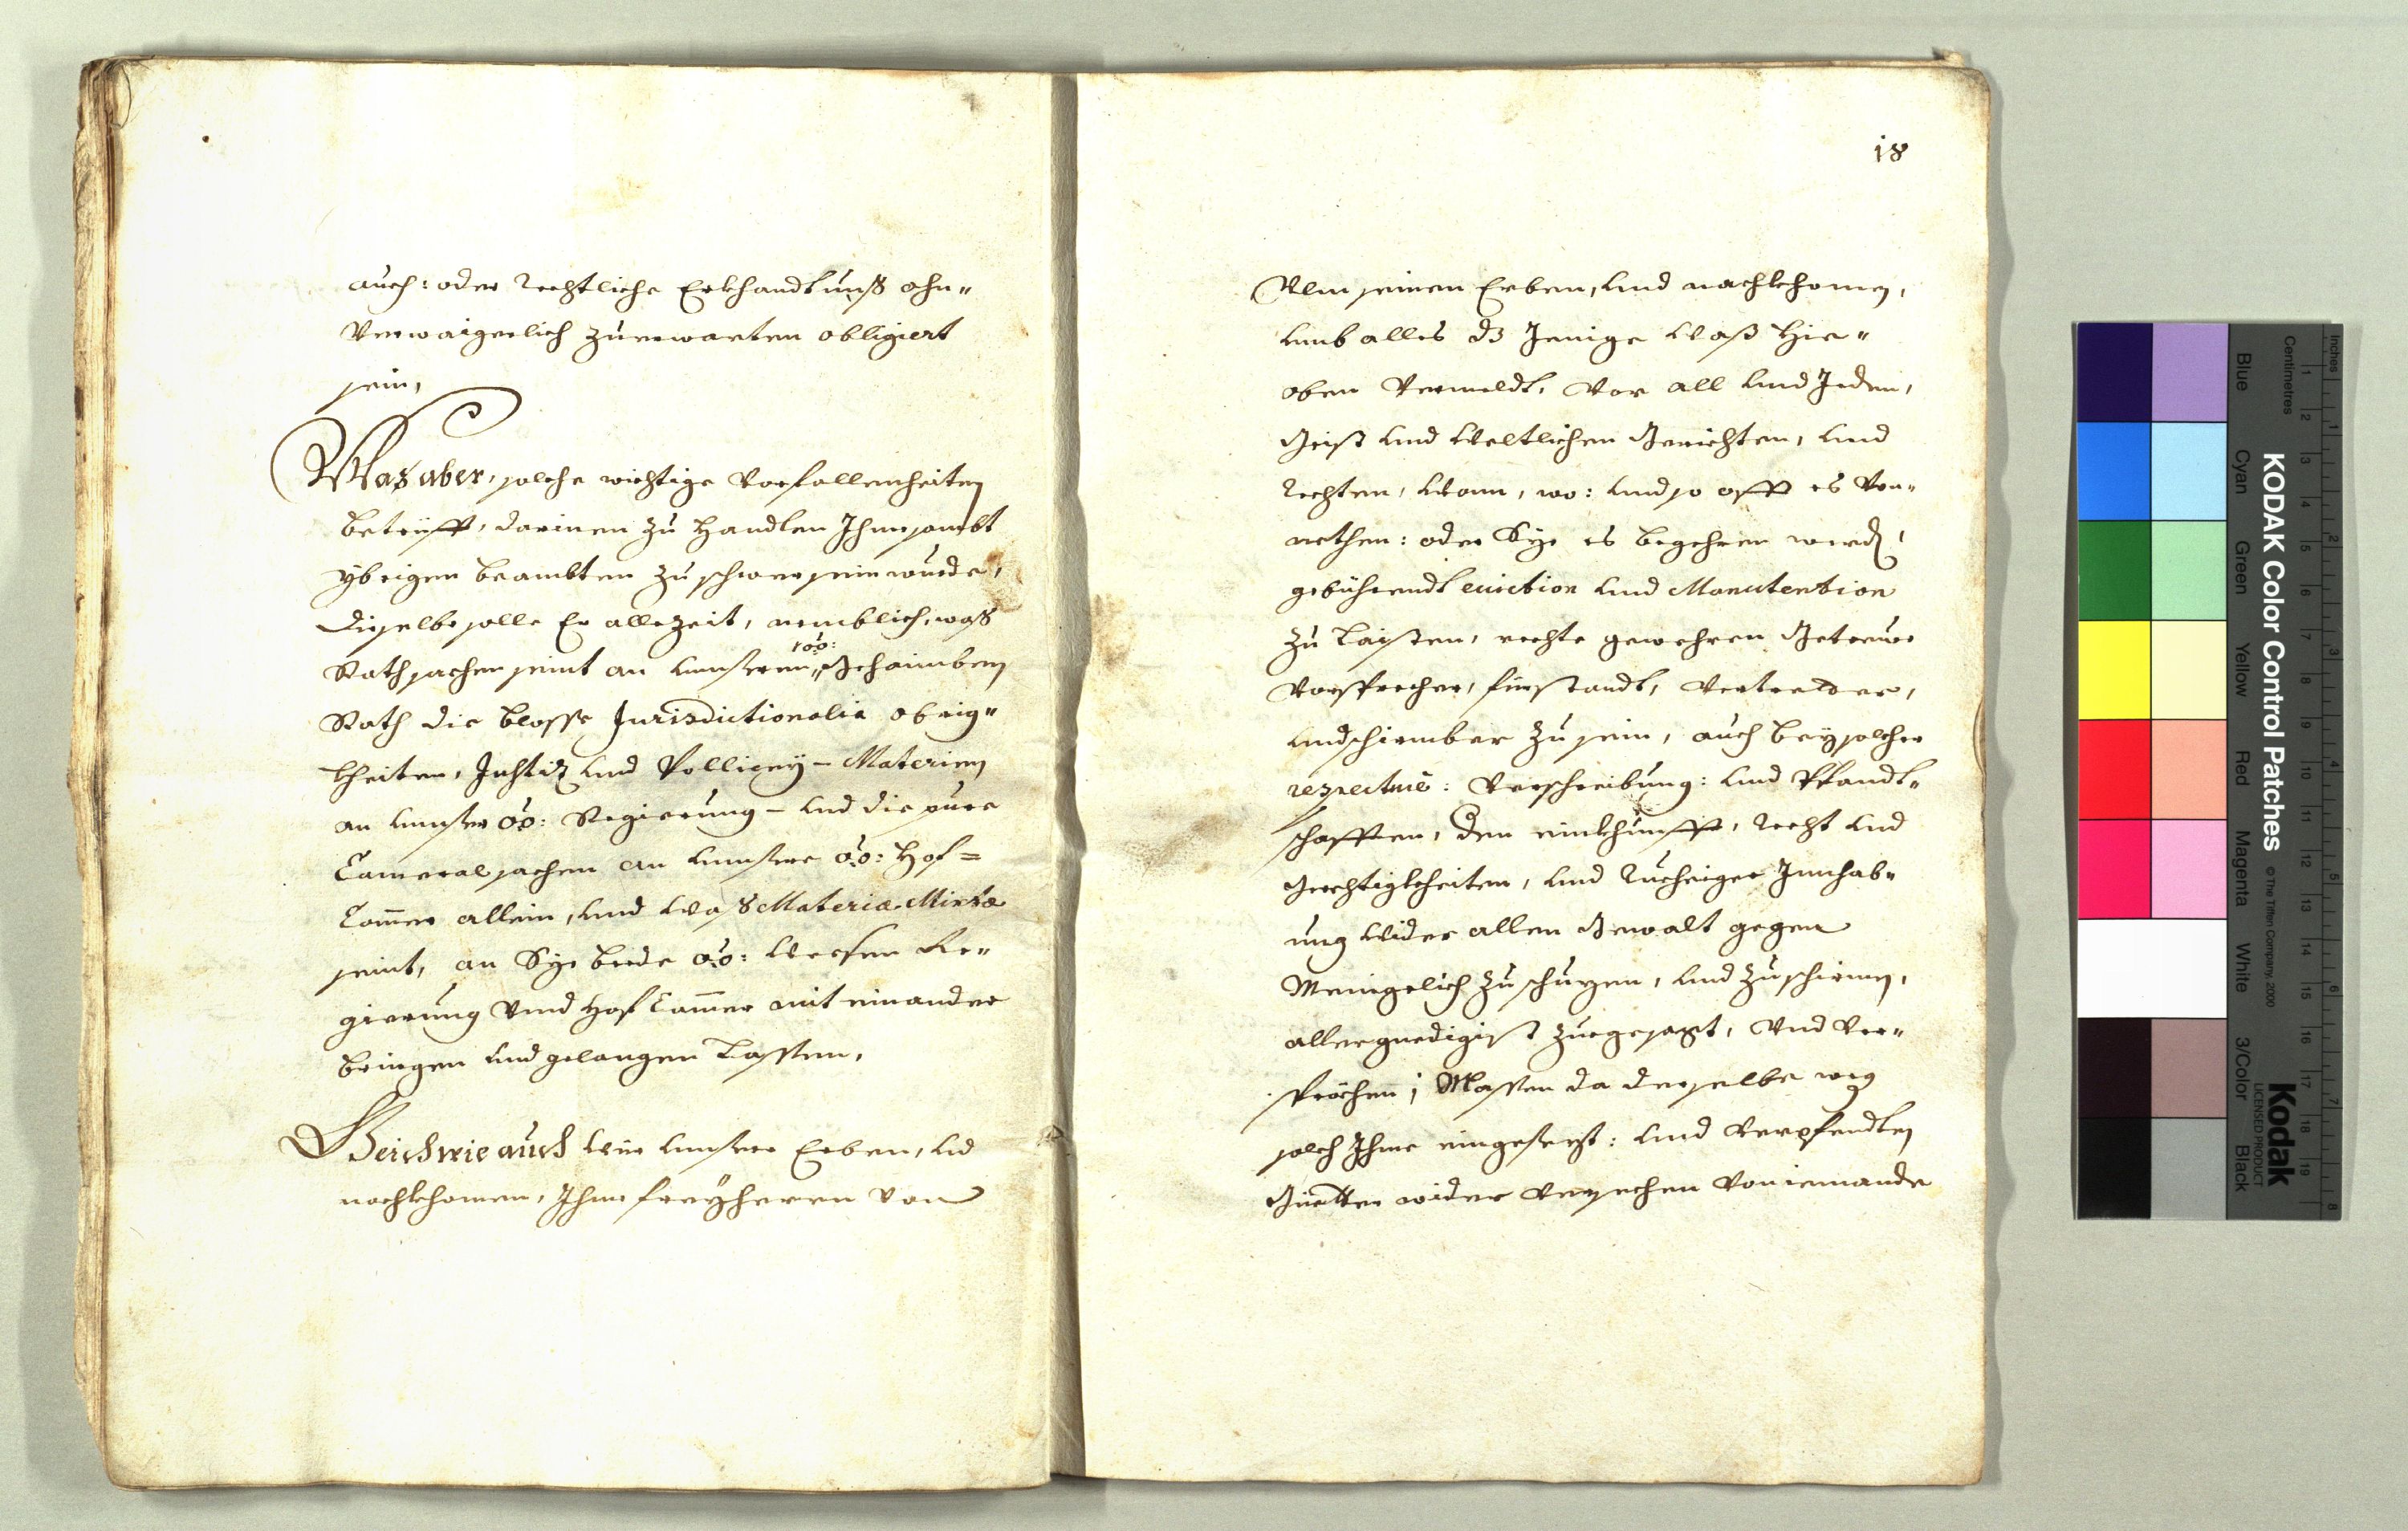 auch: oder Rechtliche Erkhandtnuß ohn„
Verwaigerlich zuerwarten obligiert
sein,
Was aber, solche wichtige Vorfallenheiten
betrifft, darinen zu handlen Ihme sambt
ybrigen beambten zu schwer sein wurde,
dieselbe solle Er allezeit, nemblich, waß
Rath sachen seint an Unseren „ Gehaimben
Rath die blosse Jurisdictionalia obrig„
kheiten, Justiz und Pollicey - Materien
an Unser öö: Regierung - und die pure
Cameral sachen an Unsere öö: Hof =
Camer allein, und Waß Materiæ Mixtæ
seint, an Sye beede öö: Weesen Re„
gierung Vnd Hof Camer mit einander
bringen und gelangen lassen,
Gleichwie auch Wür Unsere Erben, und
nachkhomen, Ihme freyherrn Von
18
Ulm seinen Erben, und nachkhomen,
Umb alles dz Jenige Waß hie„
oben Vermeldt, Vor all und Jeden,
Geist und Weltlichen Gerichten, und
Rechten, Wann, wo: und so offt es Von„
nethen: oder Sye es begehren werden,
gebührendt euiction und Manutention
zu laisten, rechte gewehren Getreue
Vorsprecher, fürstandt, Vertretter,
und schirmber zu sein, auch bey solcher
respectiuè: Verschreibung: und Pfandt„
schafften, den einkhunfft, Recht und
Gerechtigkheiten, und Ruehiger Innhab„
ung Wider allen Gewalt gegen
Menigelich zu schuzen, und zu schirmen,
allergnedigist zuegesagt, Vnd Ver„
sprochen; Massen da derselbe weg
solch Ihme eingesezt: und Verpfendten
Güetter wider Versechen Von iemande